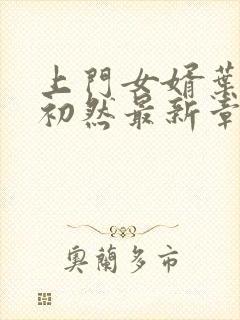 上門女婿葉
初然最新章
奧蘭多市